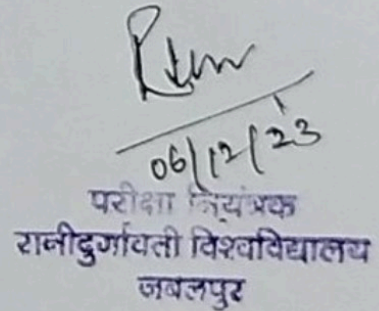 06/12/23
परीक्षा नियंत्रक
रानीदुर्गावती विश्वविद्यालय
जबलपुर